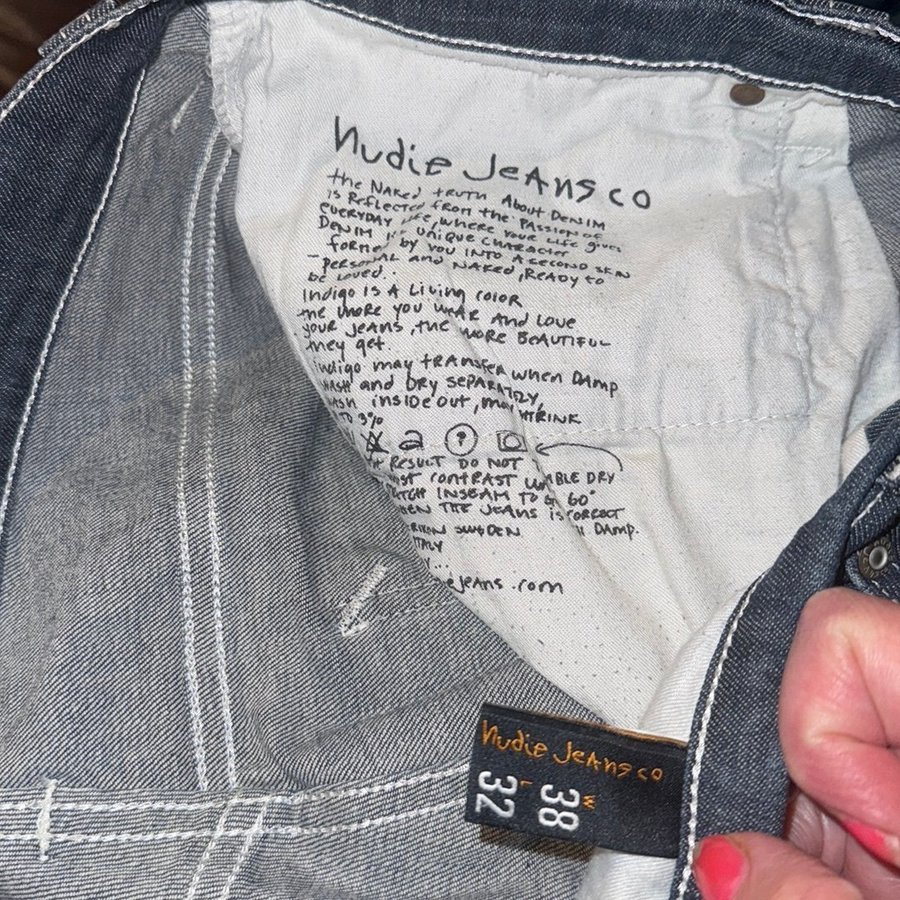 Nudie Jeans co
the NAKED tRUtH About DENIM
is REFLECtED from the PASSION OF
EVERYDAY LIFE, WHERE YOUR LIFE gives
DENIM UNIQUE CHARACTER
formed by YOU INTO A SECOND SKIN
- PERSONAL AND NAKED, READY to
be LOVED.
Indigo IS A Living color
the more you WEAR AND LOVE
YOUR JEANS, the MORE BEAUTIFUL
they get.
Indigo may tRANSFER when DAMP
WASH AND DRY SEPARATELY,
WASH INSIDE OUT, may SHRINK
3%
RESULT DO NOT
CONTRAST DRY
INSEAM TO 60°
THE JEANS IS CORRECT
SWEDEN DAMP.
ITALY
jeans.com
Nudie Jeans co
W 38
L 32